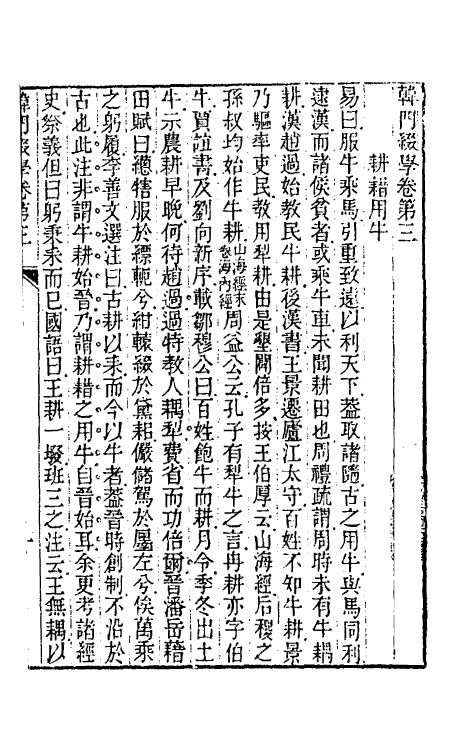 韓門綴學卷第三
耕藉用牛
易曰服牛乘馬引重致遠以利天下葢取諸隨古之用牛與馬同利
逮漢而諸侯貧者或乘牛車未聞耕田也周禮疏謂周時未有牛耦
耕漢趙過始教民牛耕後漢書王景遷廬江太守百姓不知牛耕景
乃驅率吏民教用犁耕由是墾闢倍多按王伯厚云山海經后稷之
孫叔均始作牛耕山海經末卷海內經周益公云孔子有犁牛之言冉耕亦字伯
牛賈誼書及劉向新序載鄒穆公曰百姓飽牛而耕月令季冬出土
牛示農耕早晚何待趙過過特教人耦犁費省而功倍爾晉潘岳藉
田賦曰緫犗服於縹軛兮紺轅綴於黛耜儼儲駕於廛左兮俟萬乘
之躬履李善文選注曰古耕以耒而今以牛者葢晉時創制不沿於
古也此注非謂牛耕始晉乃謂耕耤之用牛自晉始耳余更考諸經
史祭義但曰躬秉耒而已國語曰王耕一墢班三之注云王無耦以
韓門綴學卷第三
一